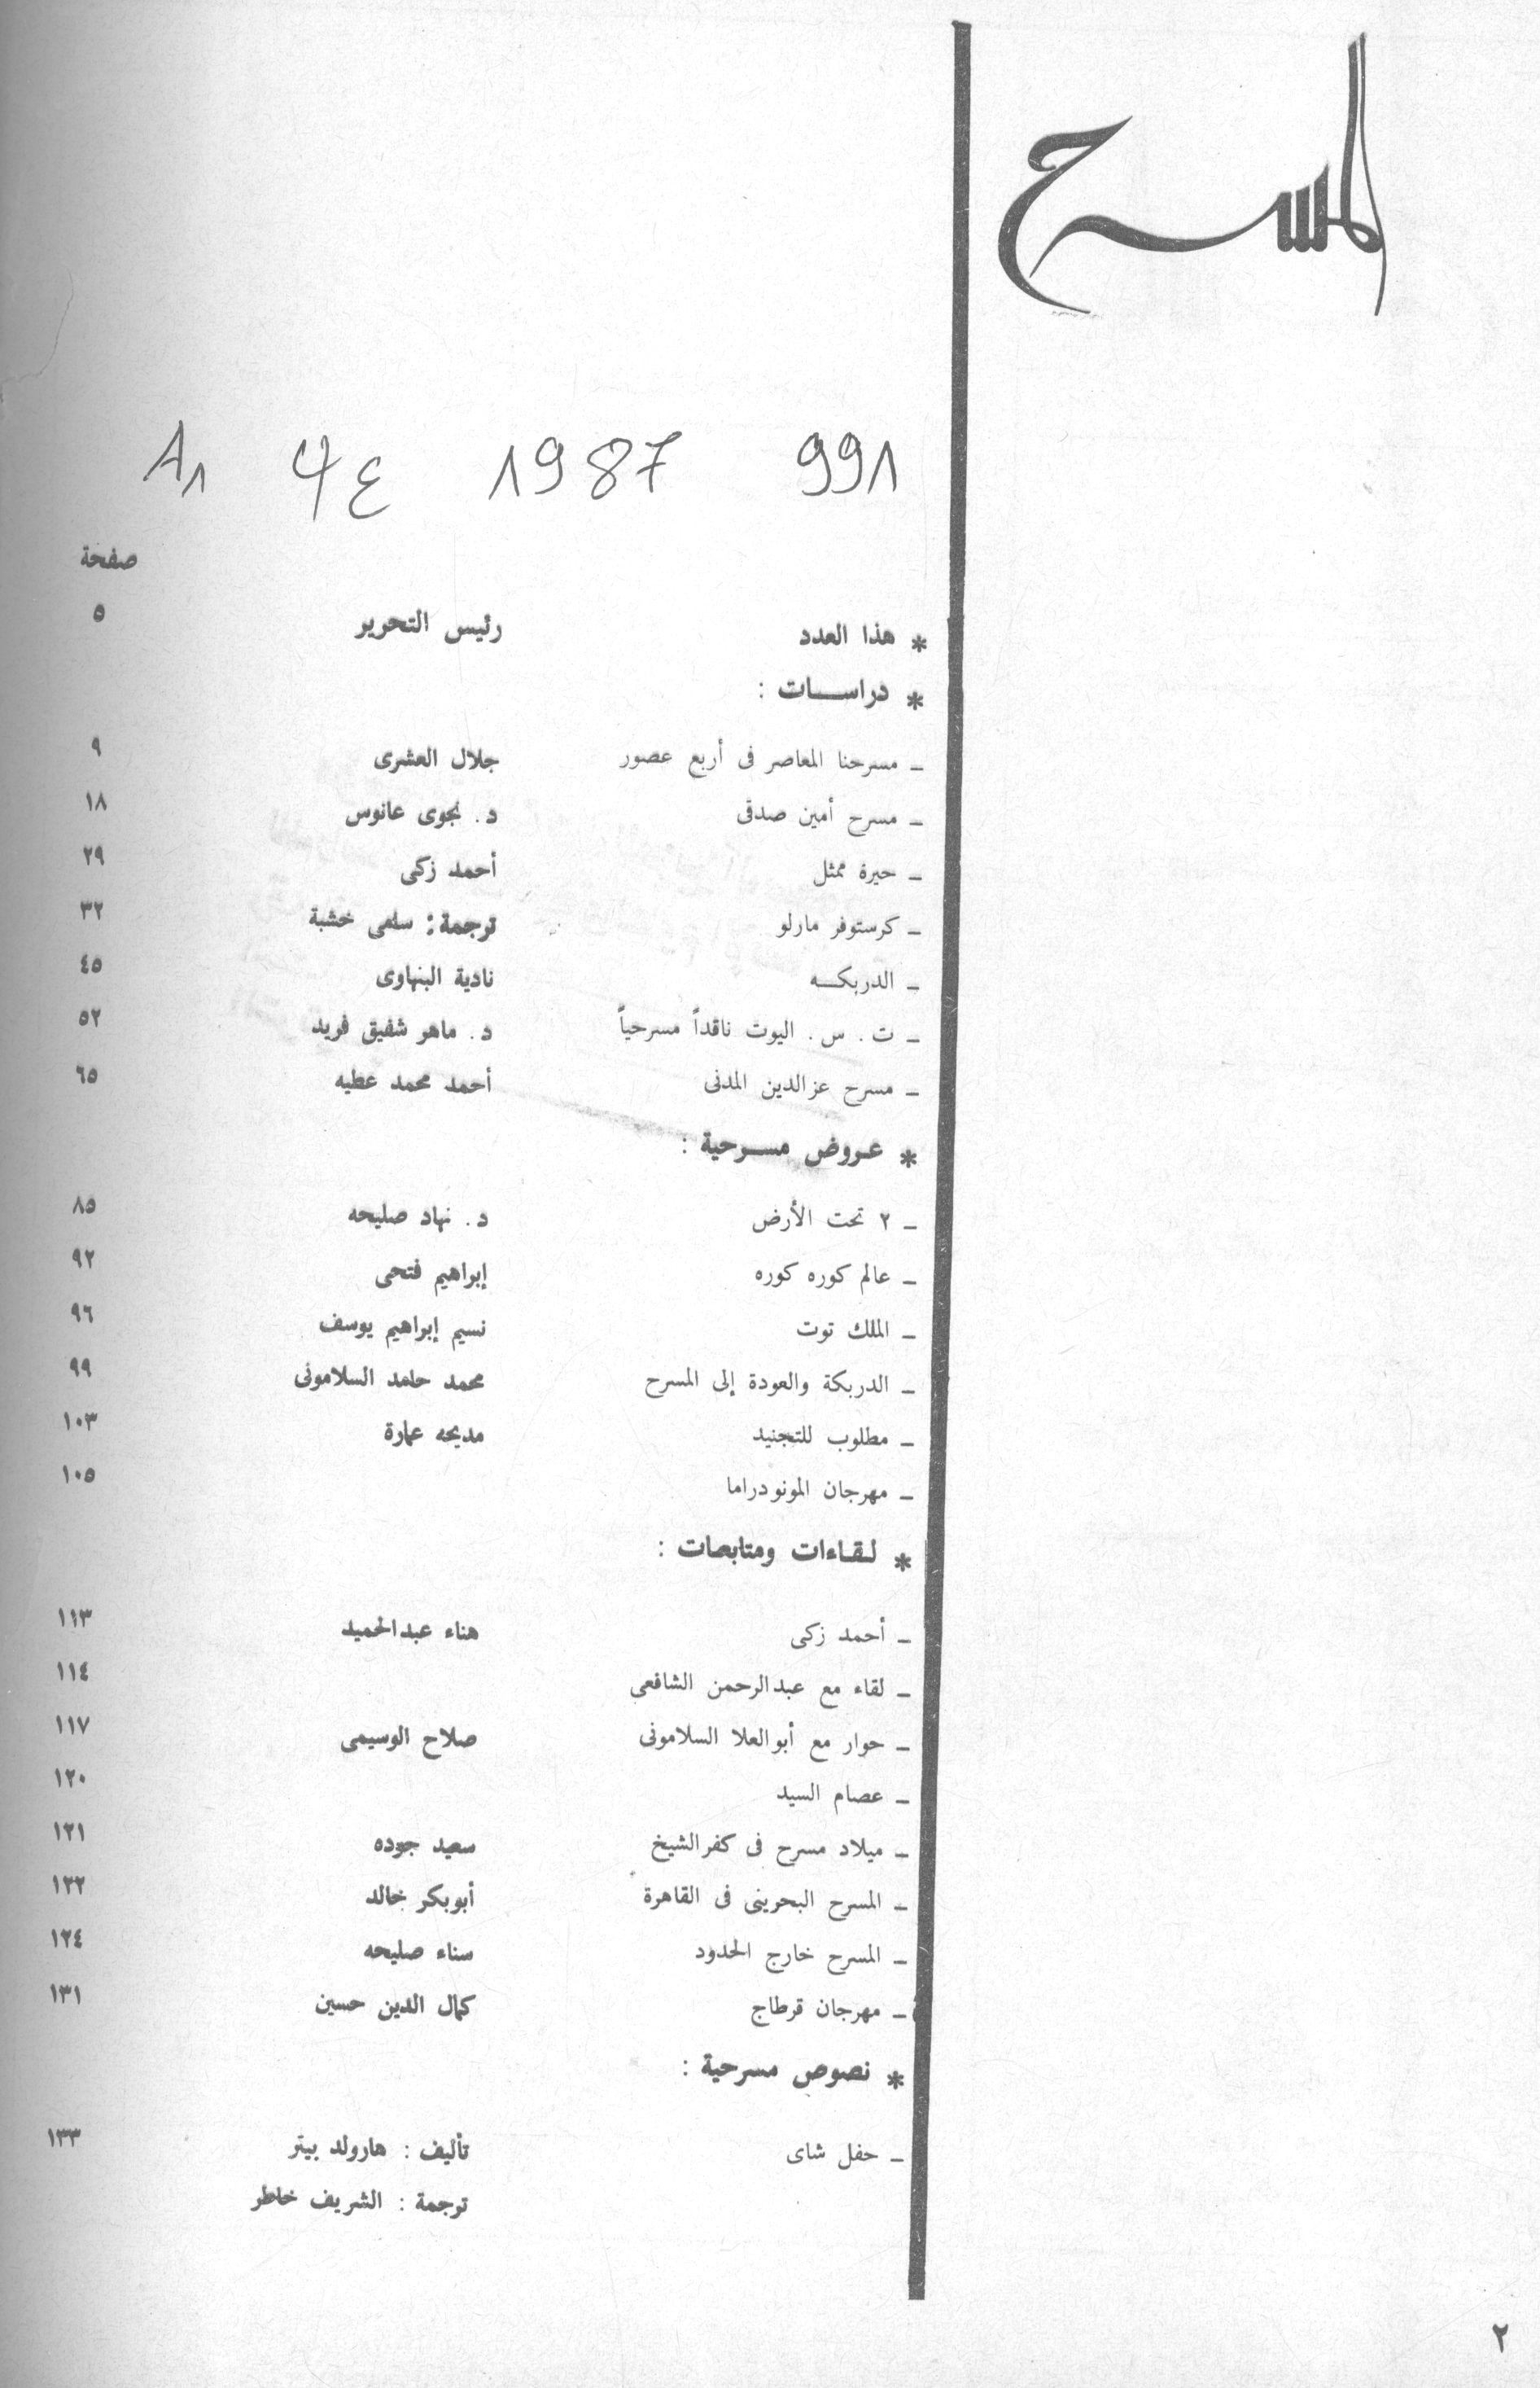 المسرح
991 1987 4ع A1
صفحة
* هذا العدد رئيس التحرير ٥
* دراسات :
ـ مسرحنا المعاصر فى أربع عصور جلال العشرى ٩
ـ مسرح أمين صدقى د. نجوى عانوس ١٨
ـ حيرة ممثل أحمد زكى ٢٩
ـ كرستوفر مارلو ترجمة : سامى خشبة ٣٢
ـ الدربكـــه نادية البنهاوى ٤٥
ـ ت . س . اليوت ناقداً مسرحياً د. ماهر شفيق فريد ٥٢
ـ مسرح عز الدين المدنى أحمد محمد عطيه ٦٥
* عروض مسرحية :
ـ ٢ تحت الأرض د. نهاد صليحه ٨٥
ـ عالم كوره كوره إبراهيم فتحى ٩٢
ـ الملك توت نسيم إبراهيم يوسف ٩٦
ـ الدربكة والعودة إلى المسرح محمد حامد السلامونى ٩٩
ـ مطلوب للتجنيد مديحه عمارة ١٠٣
ـ مهرجان المونودراما ١٠٥
* لقاءات ومتابعات :
ـ أحمد زكى هناء عبد الحميد ١١٣
ـ لقاء مع عبد الرحمن الشافعى ١١٤
ـ حوار مع أبو العلا السلامونى صلاح الوسيمى ١١٧
ـ عصام السيد ١٢٠
ـ ميلاد مسرح فى كفر الشيخ سعيد جوده ١٢١
ـ المسرح البحرينى فى القاهرة أبوبكر خالد ١٢٢
ـ المسرح خارج الحدود سناء صليحه ١٢٤
ـ مهرجان قرطاج كمال الدين حسين ١٣١
* نصوص مسرحية :
ـ حفل شاى تأليف : هارولد بيتر ١٣٣
ترجمة : الشريف خاطر
٢